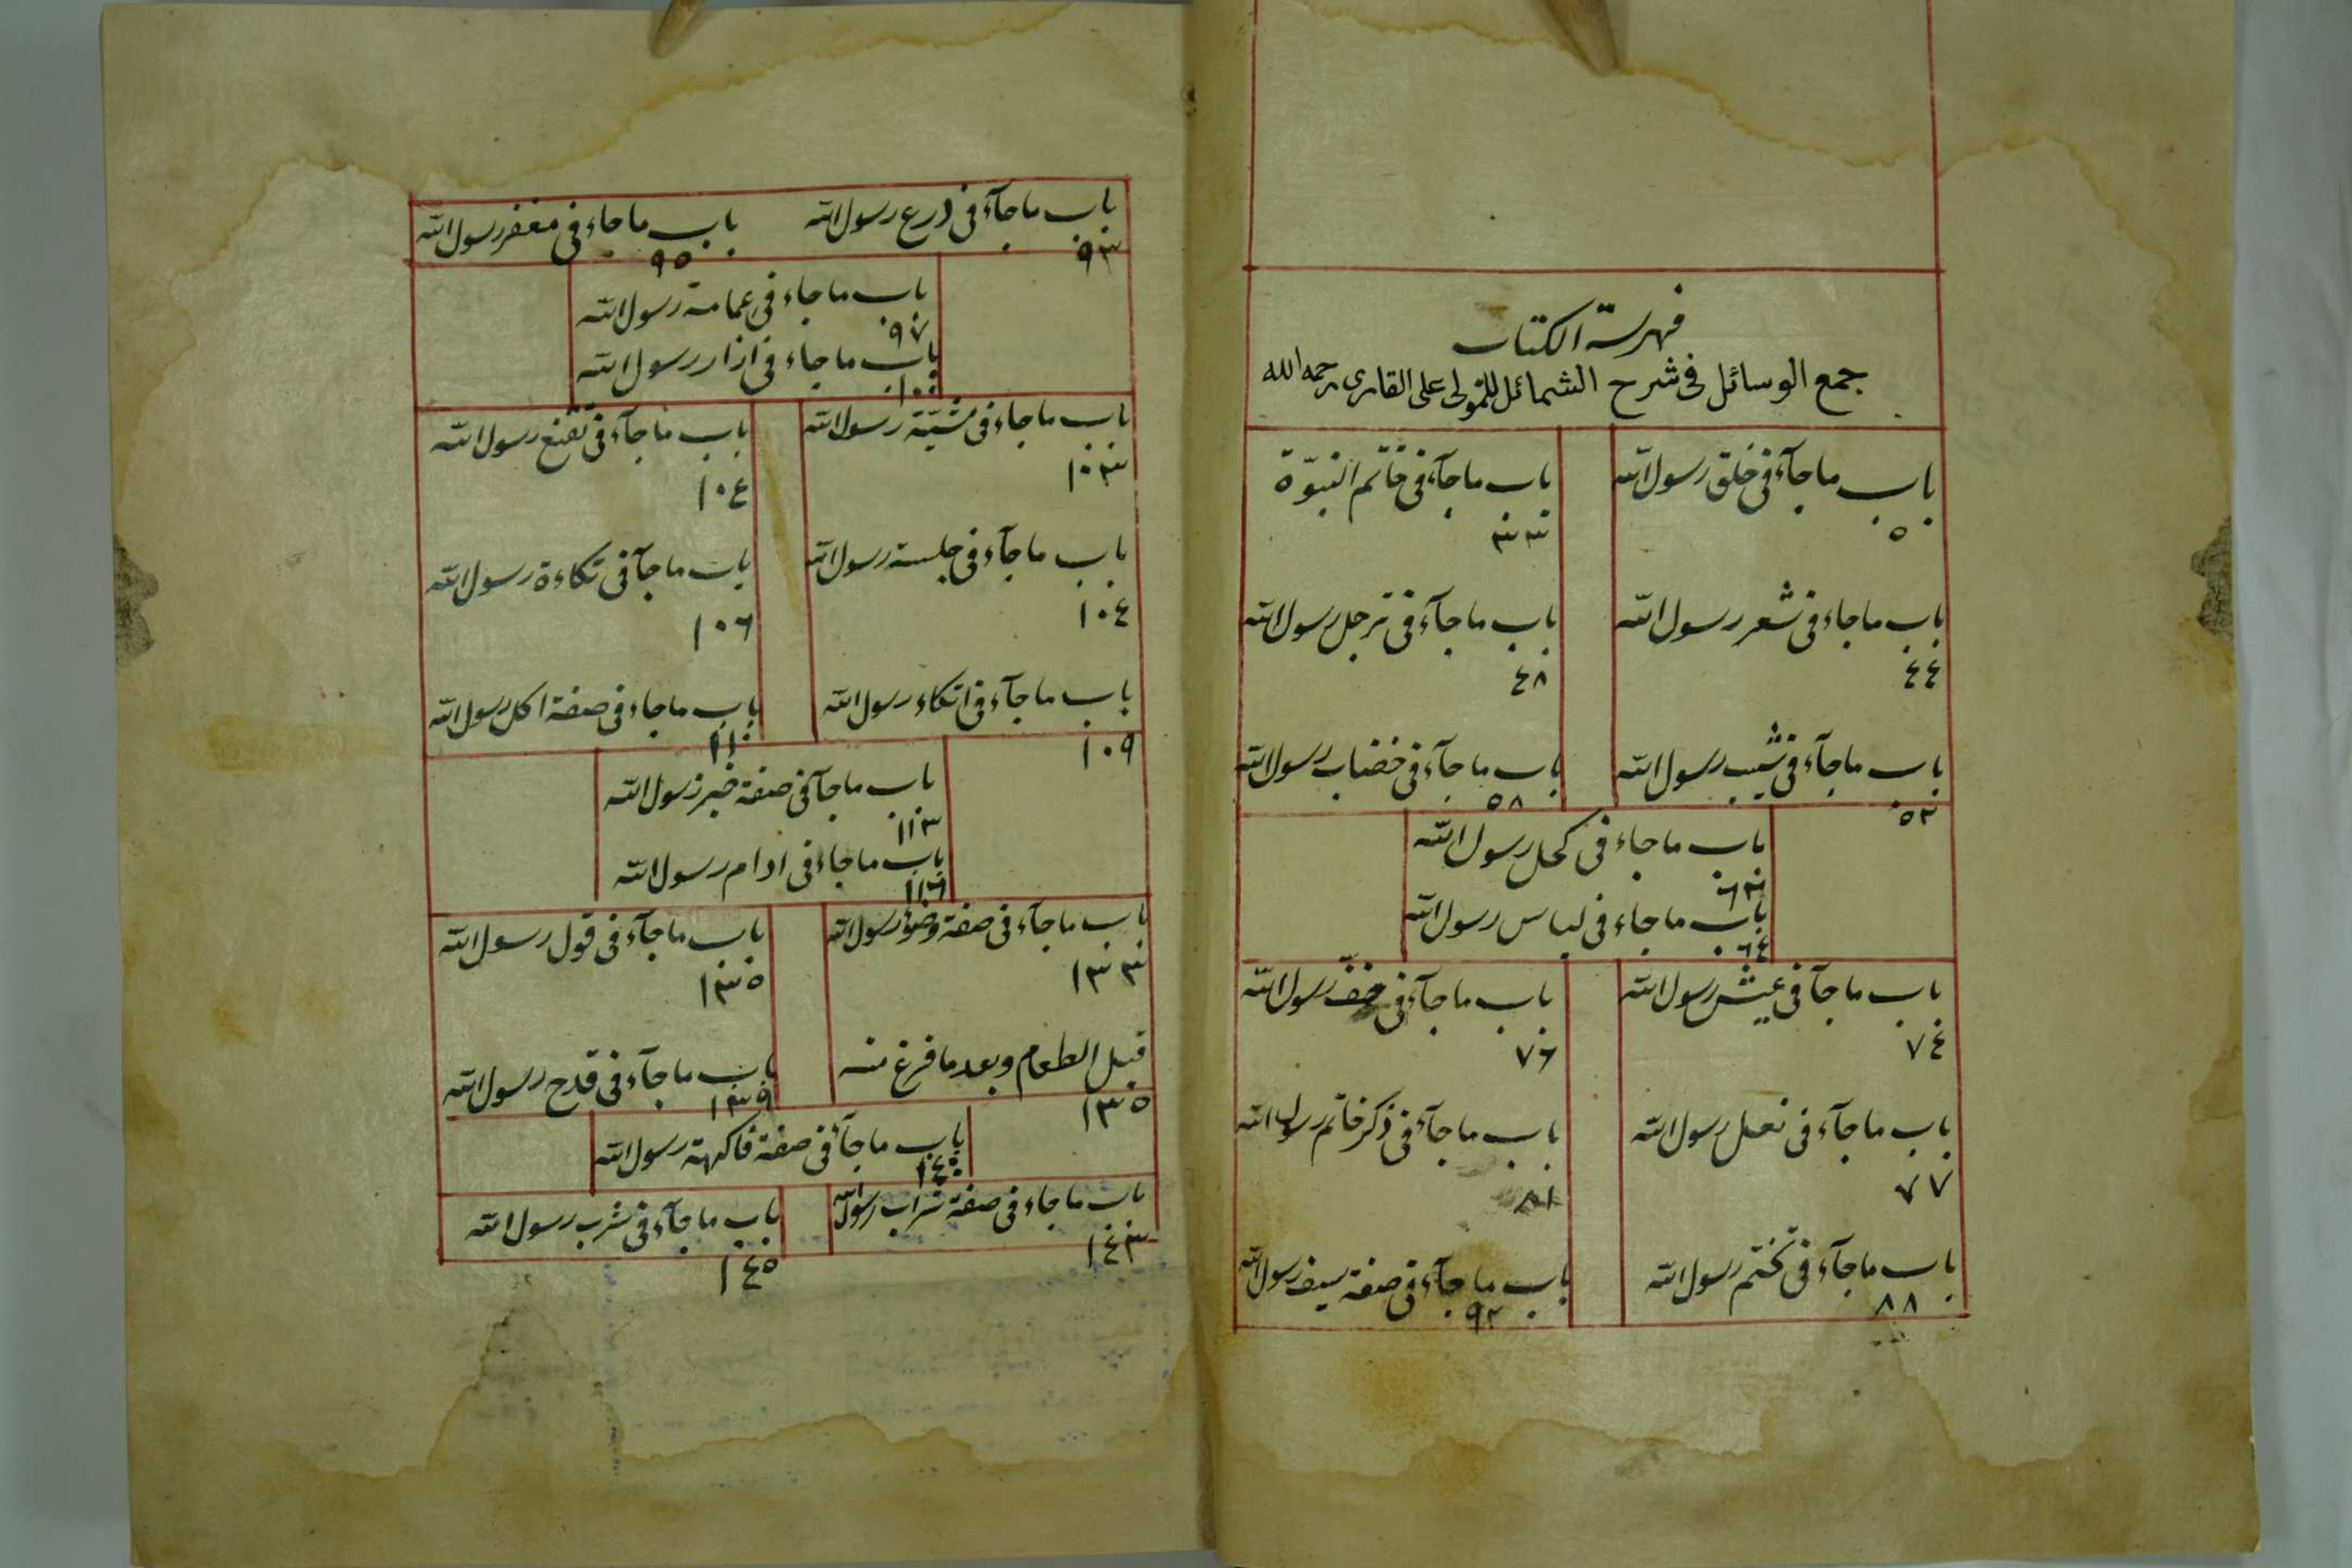 فهرسة الكتاب
جمع الوسائل فى شرح الشمائل للمولى على القارى رحمه الله
باب ما جآء فى خلق رسول الله
٥
باب ما جآء فى خاتم النبوة
٣٣
باب ما جاء فى شعر رسول الله
٤٤
باب ما جآء فى ترجل رسول الله
٤٨
باب ما جآء فى شيب رسول الله
٥٣
باب ما جآء فى خضاب رسول الله
٥٨
باب ما جاء فى كحل رسول الله
٦٣
باب ما جاء فى لباس رسول الله
٦٤
باب ما جآء فى عيش رسول الله
٧٤
باب ما جآء فى خف رسول الله
٧٦
باب ما جآء فى نعل رسول الله
٧٧
باب ما جآء فى ذكر خاتم رسول الله
٨١
باب ما جآء فى تختم رسول الله
٨٨
باب ما جآء فى صفة سيف رسول الله
٩٢
باب ما جآء فى درع رسول الله
٩٣
باب ما جاء فى مغفر رسول الله
٩٥
باب ما جاء فى عمامة رسول الله
٩٧
باب ما جاء فى ازار رسول الله
١٠٠
باب ما جاء فى مشيّة رسول الله
١٠٣
باب ما جآء فى تقنع رسول الله
١٠٤
باب ما جآء فى جلسة رسول الله
١٠٤
باب ما جآ فى تكاءة رسول الله
١٠٦
باب ما جآء فى اتكاء رسول الله
١٠٩
باب ما جاء فى صفة اكل رسول الله
١١٠
باب ما جآ فى صفة خبز رسول الله
١١٣
باب ما جاء فى ادام رسول الله
١١٦
باب ما جآء فى صفة وضوء رسول الله
١٣٣
باب ما جآء فى قول رسول الله
١٣٥
قبل الطعام وبعد ما فرغ منه
١٣٥
باب ما جآء فى قدح رسول الله
١٣٩
باب ما جآء فى صفة فاكهة رسول الله
١٤٠
باب ما جاء فى صفة شراب رسول الله
١٤٣
باب ما جآء فى شرب رسول الله
١٤٥